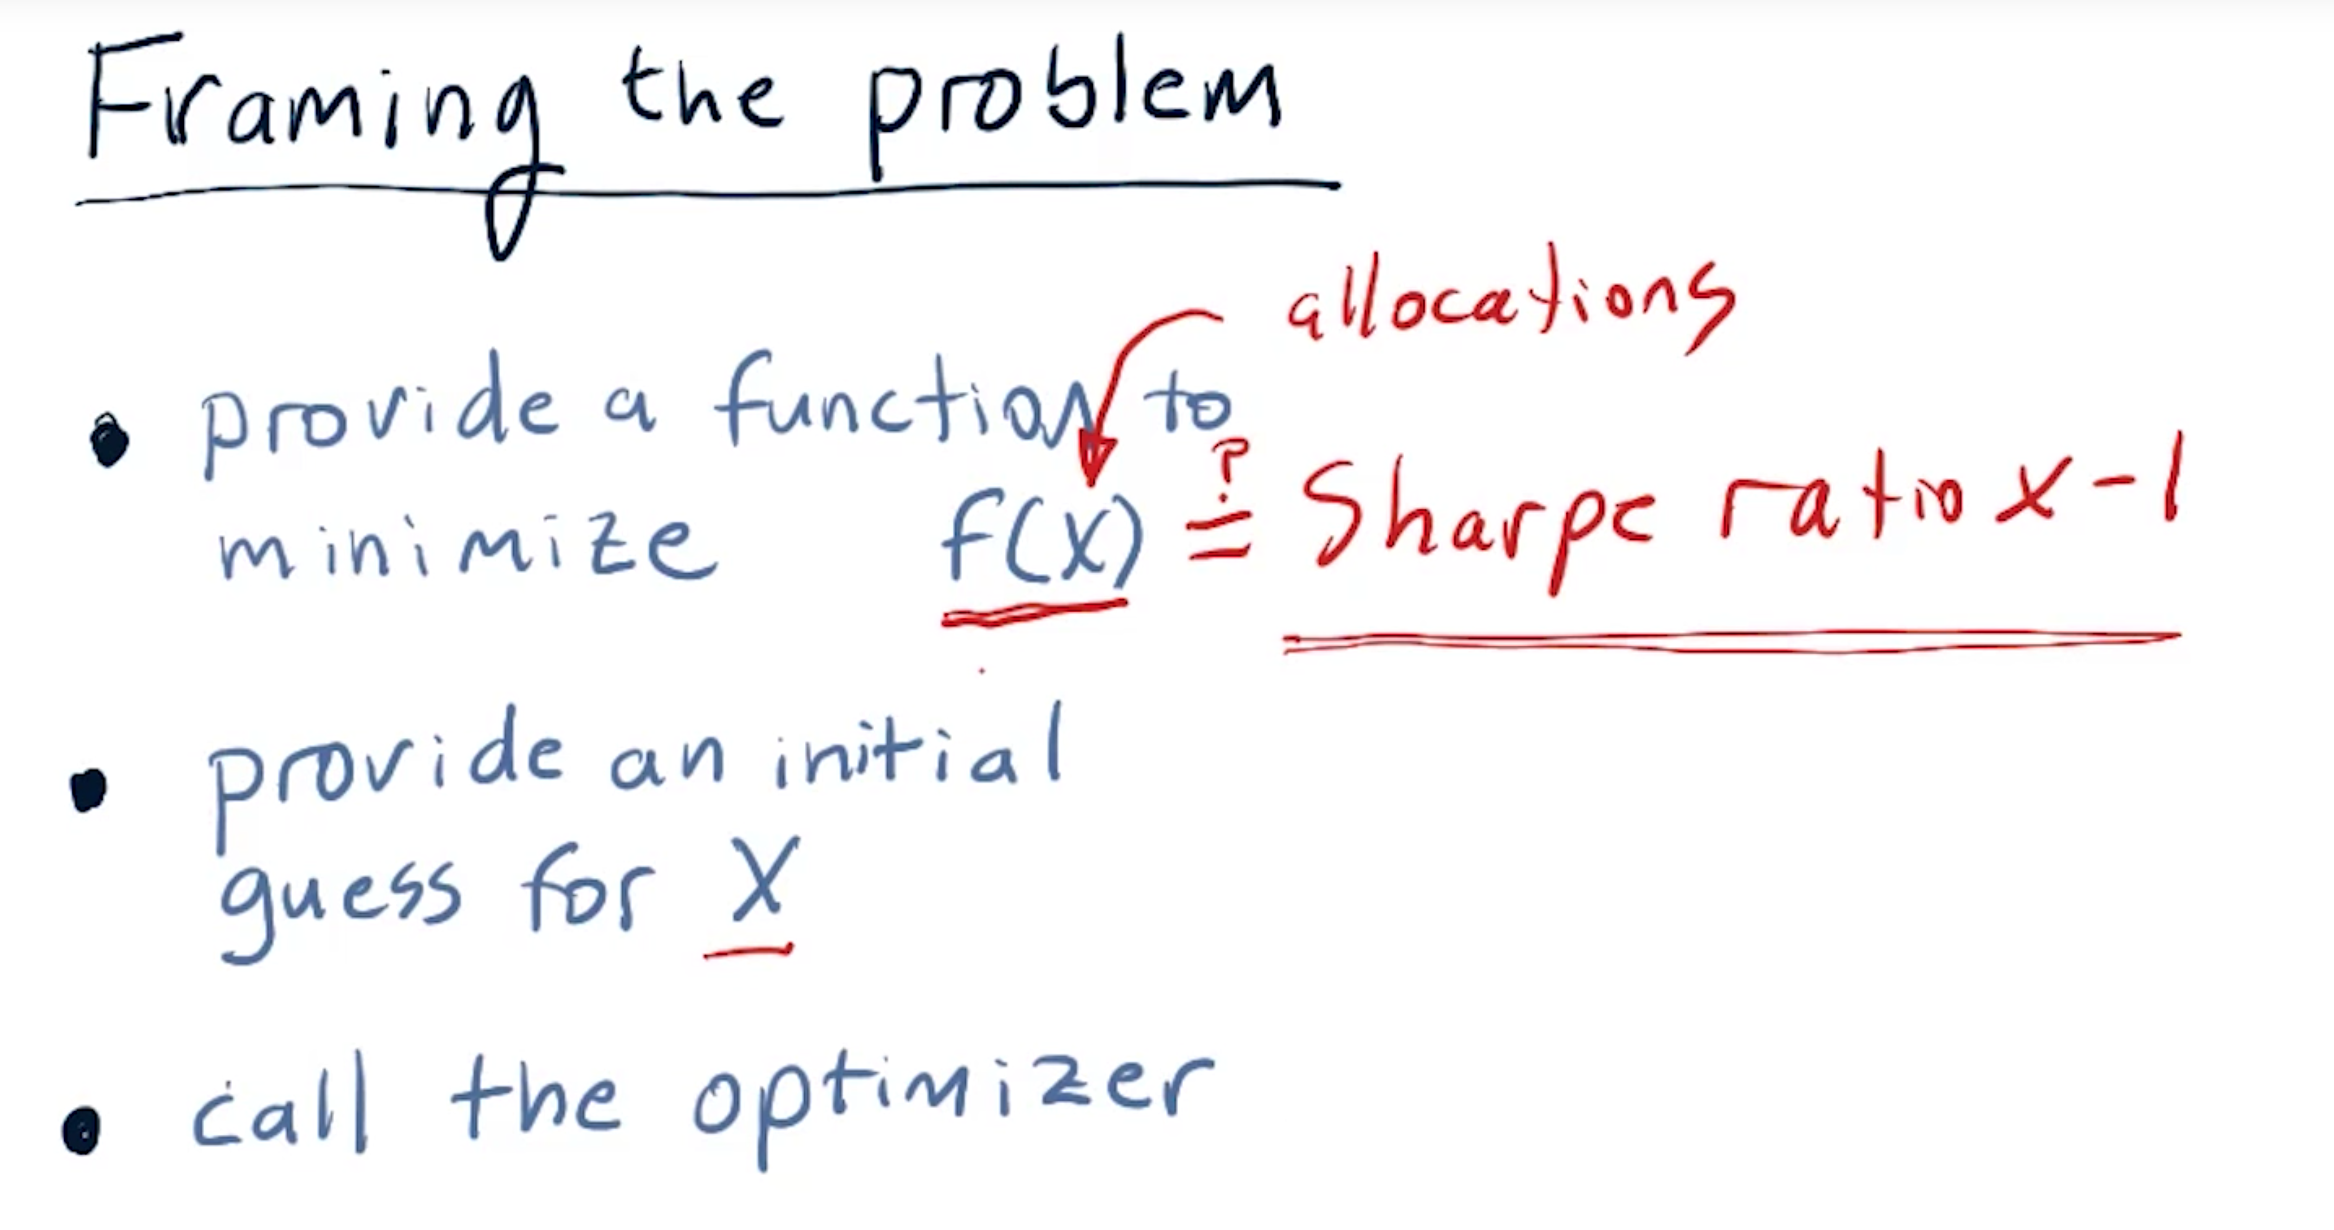 Framing the problem
allocations
• provide a function to
?
minimize f(x) = Sharpe ratio x -1
• provide an initial
guess for X
• call the optimizer